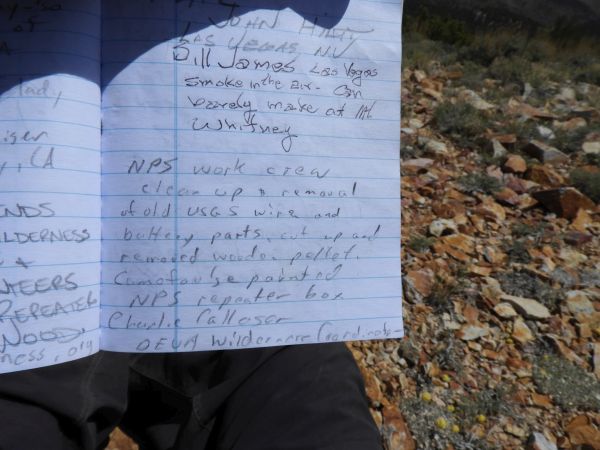 JOHN HIATT
LAS VEGAS NV
Bill James Las Vegas
Smoke in the air. Can
barely make at Mt.
Whitney
NPS work crew
clean up & removal
of old USGS wire and
battery parts, cut up and
removed wooden pallet.
Camofaulge painted
NPS repeater box
Charlie Callagan
DEVA Wilderness Coordinator
of
A
lady,
, CA
ENDS
WILDERNESS
&
NTEERS
REPEATER
WOOD,
ness.org